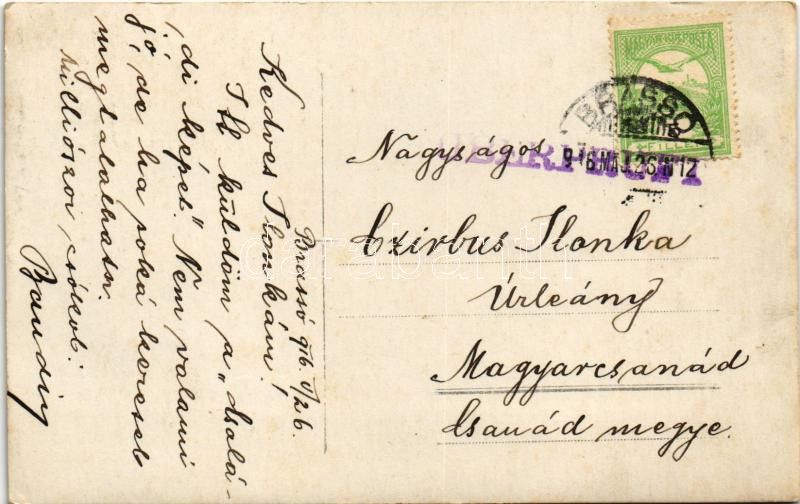 Brassó 916 V/26.
Kedves Ilonkám!
Itt küldöm a „Csalá-
di képet." Nem valami
jó, de ha soká keresel
megtalálhatsz.
Milliószor csókol:
Bandid
MAGYAR KIR. POSTA
FILLÉR
BRASSÓ
916 MÁJ. 26 N12
Nagyságos
Czirbus Ilonka
Úrleány
Magyarcsanád
Csanád megye.